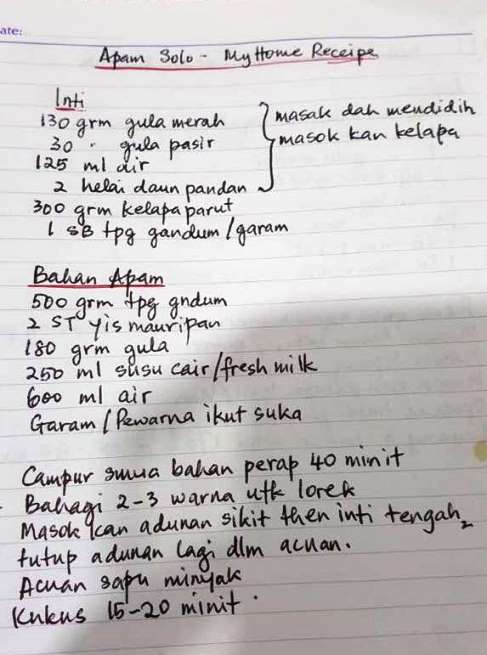 ate:
Apam Solo - My Home Receipe
Inti
130 grm gula merah
30 " gula pasir
125 ml air
2 helai daun pandan
masak dah mendidih
masok kan kelapa
300 grm kelapa parut
1 SB tpg gandum/garam
Bahan Apam
500 grm tpg gndum
2 ST yis mauripan
180 grm gula
250 ml susu cair/fresh milk
600 ml air
Garam/Pewarna ikut suka
Campur smua bahan perap 40 minit
Bahagi 2-3 warna utk lorek
Masok kan adunan sikit then inti tengah2
tutup adunan lagi dlm acuan.
Acuan sapu minyak
Kukus 15-20 minit.